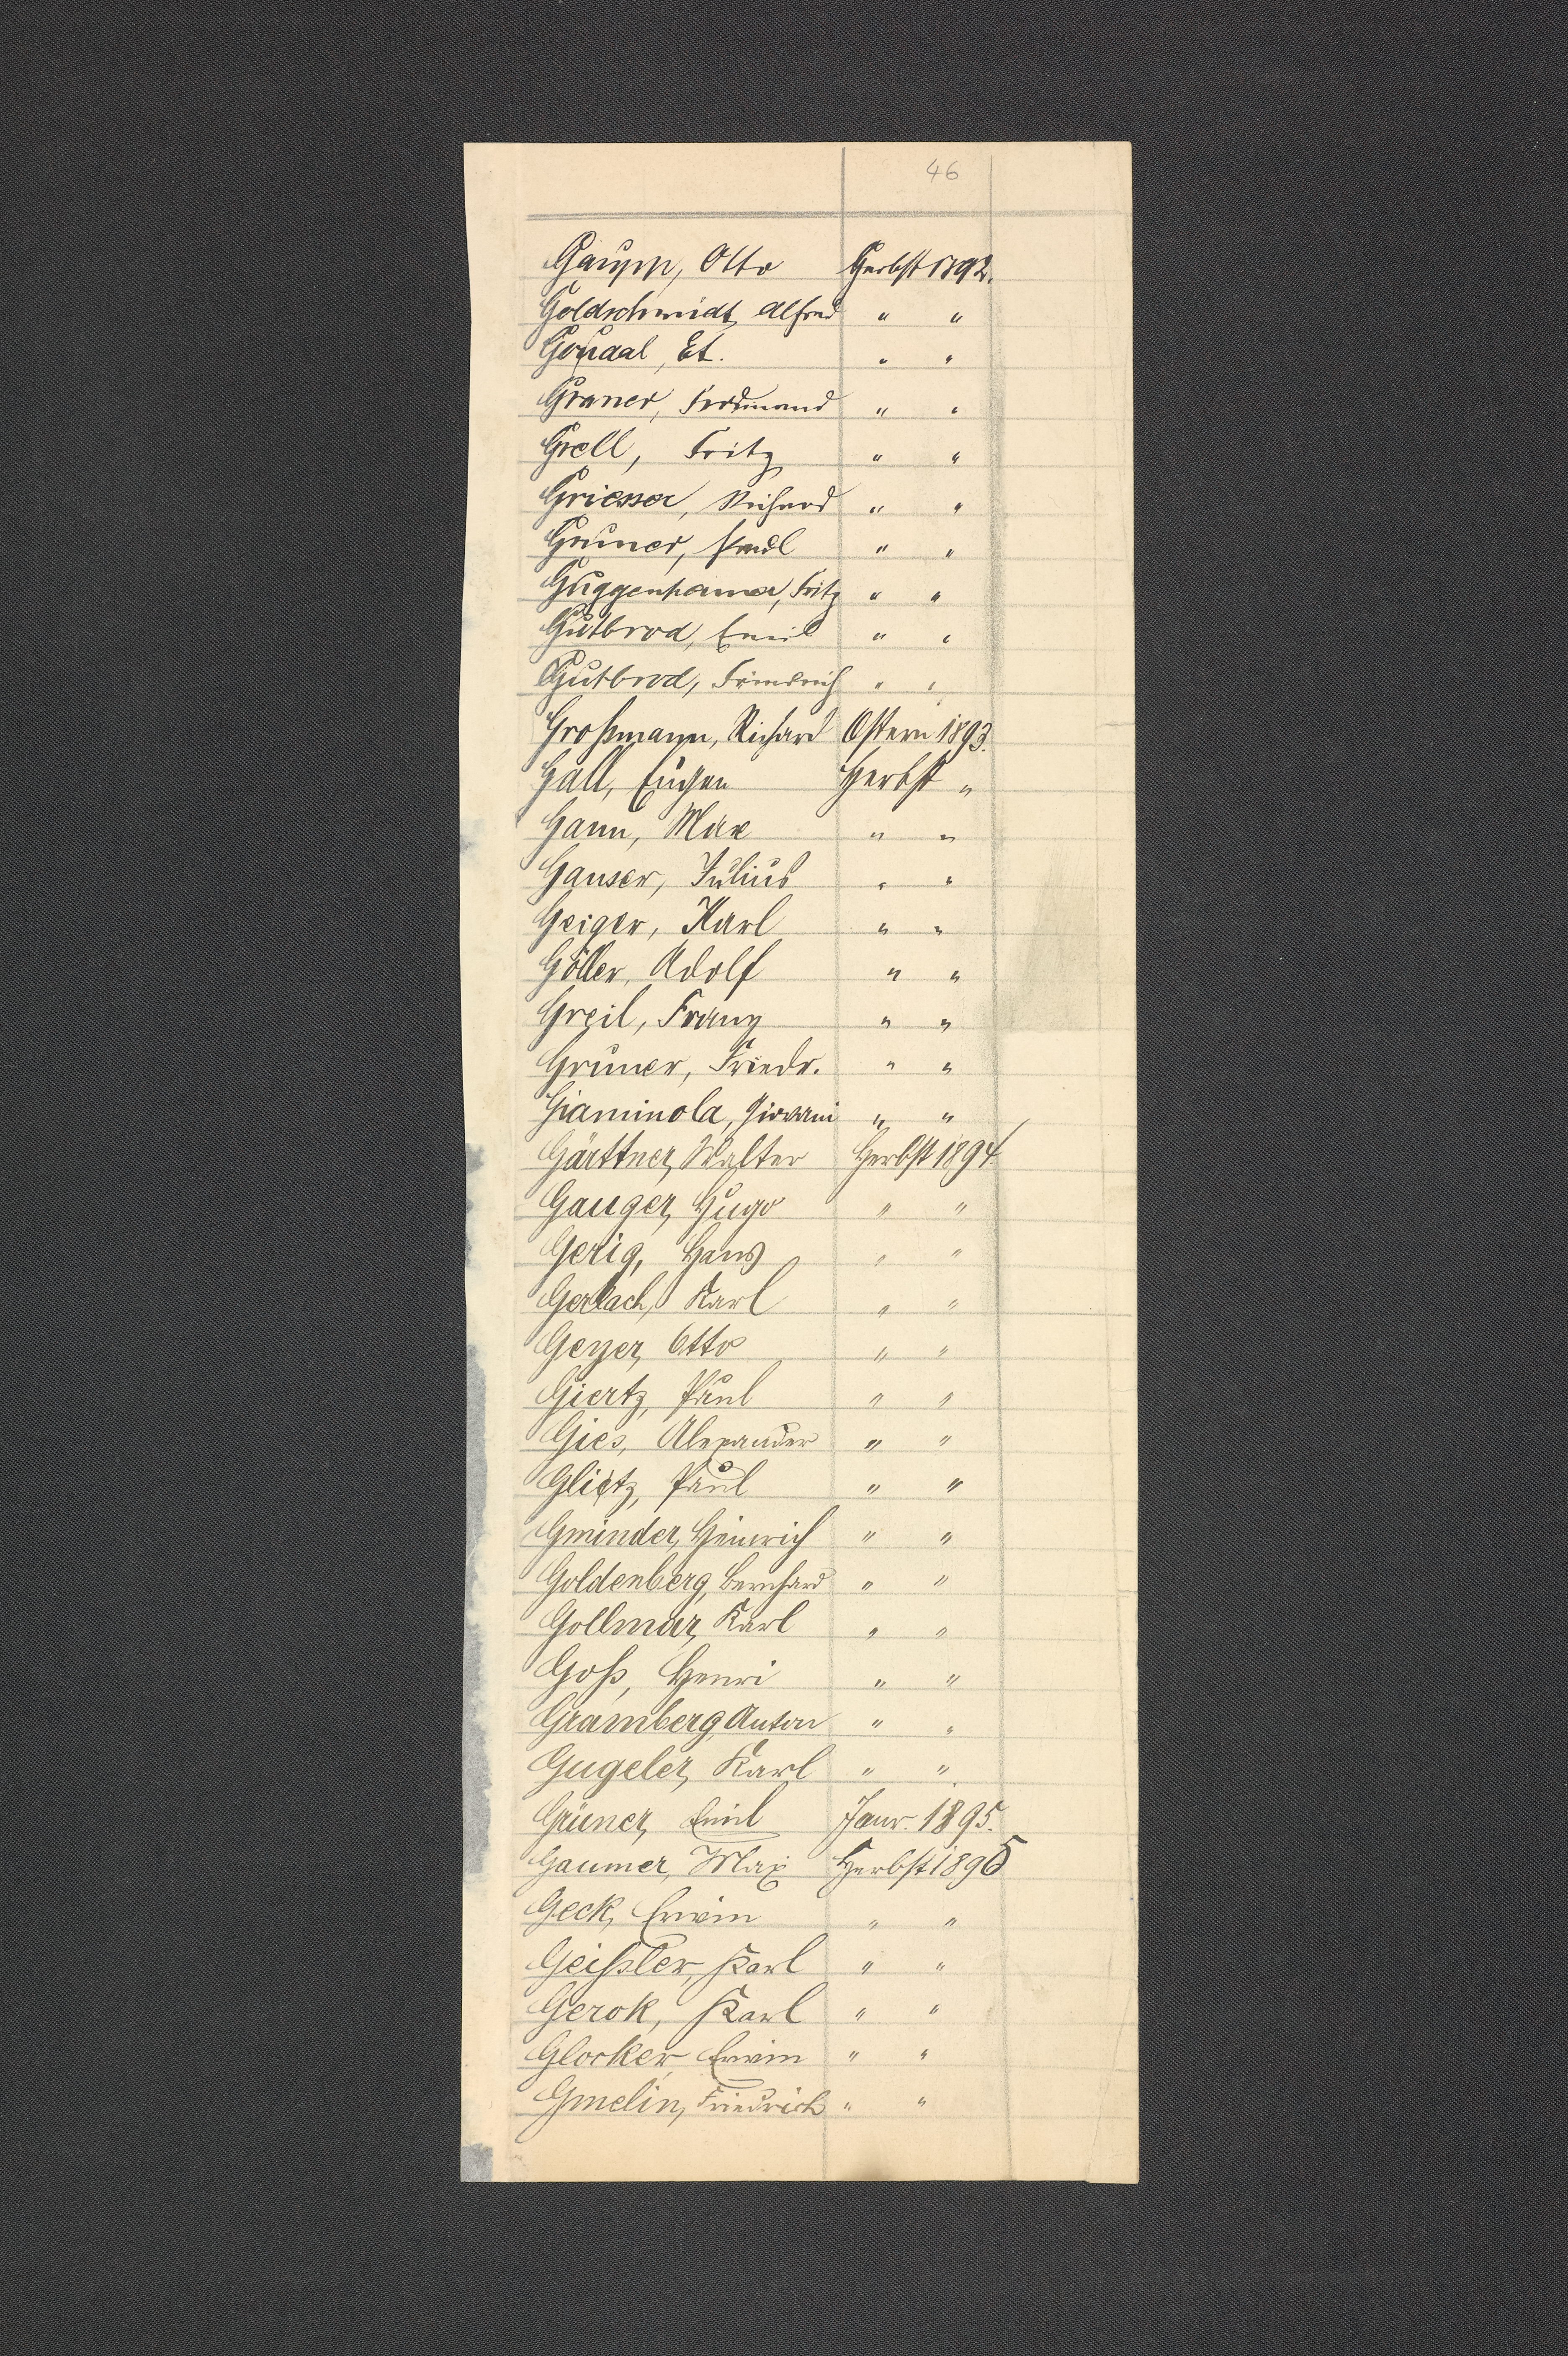 46
Gaupp, Otto Herbst 1892.
Goldschmidt, Alfred " "
Goudaal, Et. " "
Graner, Ferdinand " "
Grell, Fritz " "
Griesser, Richard " "
Gruner, Paul " "
Guggenheimer, Fritz " "
Gutbrod, Emil " "
Gutbrod, Friedrich " "
Großmann, Richard Ostern 1893.
Gall, Eugen Herbst "
Gann, Max " "
Ganser, Julius " "
Geiger, Karl " "
Göller, Adolf " "
Greil, Franz " "
Gruner, Friedr. " "
Giaminola, Giovani " "
Gärttner, Walter Herbst 1894.
Gauger, Hugo " "
Gerig, Hans " "
Gerlach, Karl " "
Geyer, Otto " "
Giertz, Paul " "
Gies, Alexander " "
Glietz, Paul " "
Gminder, Heinrich " "
Goldenberg, Bernhard " "
Gollmar, Karl " "
Goß, Henri " "
Gramberg, Anton " "
Gugeler, Karl " "
Grüner, Emil Janr. 1895.
Gaumer, Max Herbst 1895
Geck, Erwin " "
Geißler, Karl " "
Gerok, Karl " "
Glocker, Erwin " "
Gmelin, Friedrich " "